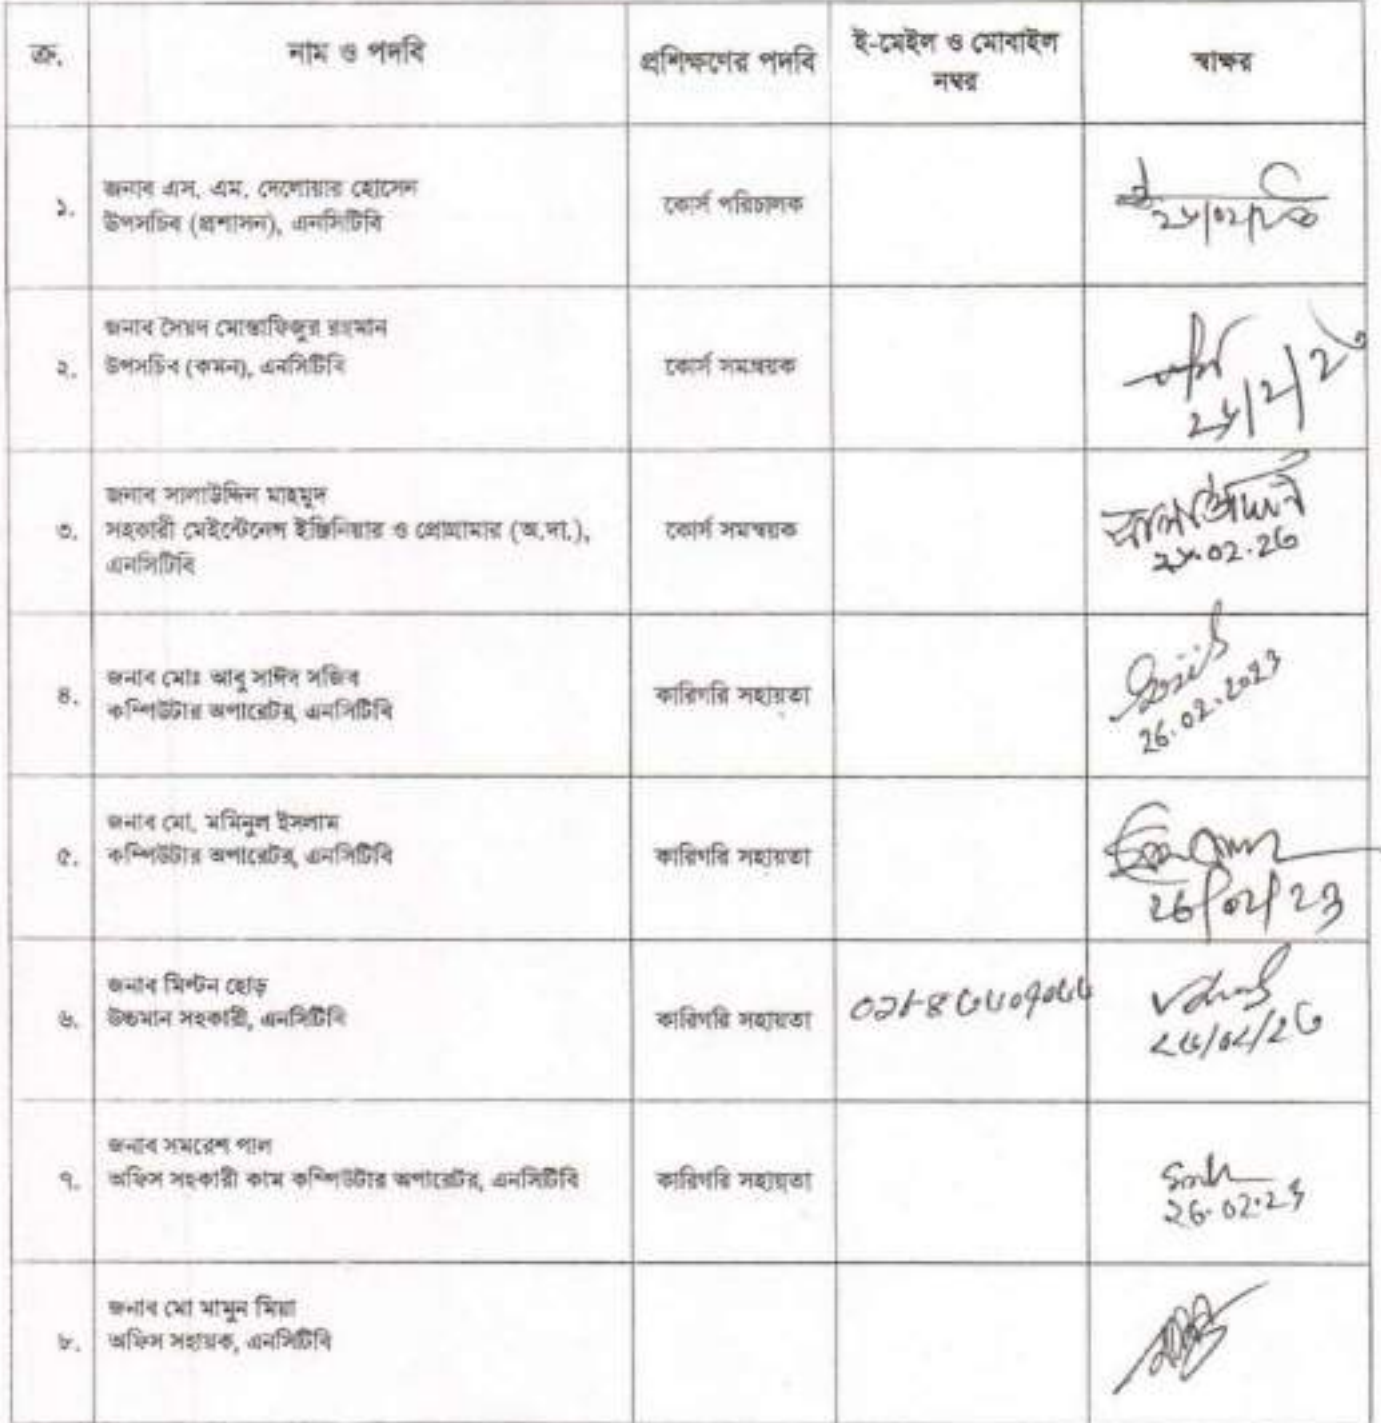 ক্র. নাম ও পদবি প্রশিক্ষণের পদবি ই-মেইল ও মোবাইল নম্বর স্বাক্ষর
১. জনাব এস. এম. দেলোয়ার হোসেন
উপসচিব (প্রশাসন), এনসিটিবি
কোর্স পরিচালক
২৬/০২/২৩
২. জনাব সৈয়দ মোস্তাফিজুর রহমান
উপসচিব (কমন), এনসিটিবি
কোর্স সমন্বয়ক
২৬/2/২৩
৩. জনাব সালাউদ্দিন মাহমুদ
সহকারী মেইন্টেনেন্স ইঞ্জিনিয়ার ও প্রোগ্রামার (অ.দা.),
এনসিটিবি
কোর্স সমন্বয়ক
সালাউদ্দিন
২৬.০২.২৩
৪. জনাব মোঃ আবু সাঈদ সজিব
কম্পিউটার অপারেটর, এনসিটিবি
কারিগরি সহায়তা
26.02.2023
৫. জনাব মো. মমিনুল ইসলাম
কম্পিউটার অপারেটর, এনসিটিবি
কারিগরি সহায়তা
26/02/23
৬. জনাব মিল্টন হোড়
উচ্চমান সহকারী, এনসিটিবি
কারিগরি সহায়তা
২৬/০২/২৩
৭. জনাব সমরেশ পাল
অফিস সহকারী কাম কম্পিউটার অপারেটর, এনসিটিবি
কারিগরি সহায়তা
26.02.23
৮. জনাব মো মামুন মিয়া
অফিস সহায়ক, এনসিটিবি